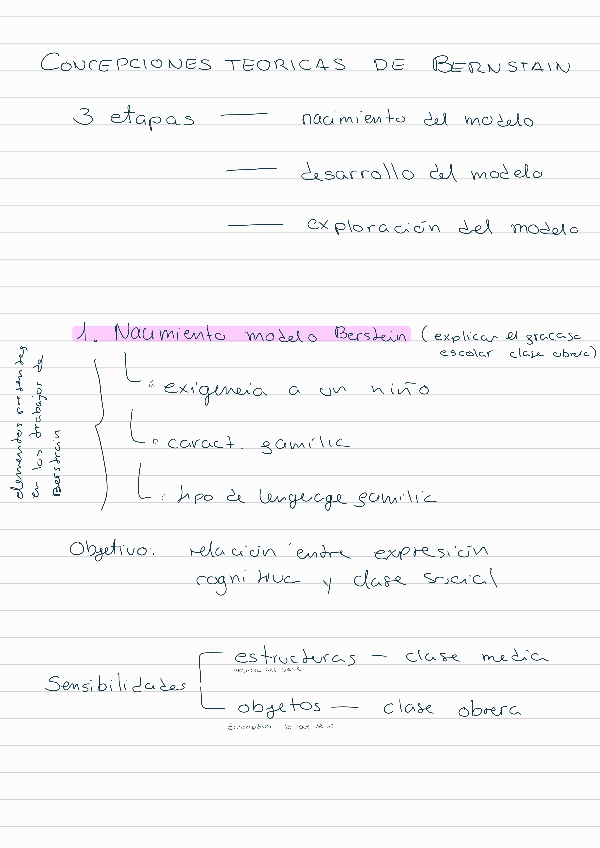 CONCEPCIONES TEORICAS DE BERNSTAIN
3 etapas — nacimiento del modelo
— desarrollo del modelo
— exploración del modelo
1. Nacimiento modelo Berstein (explicar el fracaso
escolar clase obrera)
elementos presentes
en los trabajos de
Berstrain
exigencia a un niño
caract. familia
tipo de lenguage familia
Objetivo: relación entre expresión
cognitiva y clase social
Sensibilidades
estructuras — clase media
objetos — clase obrera